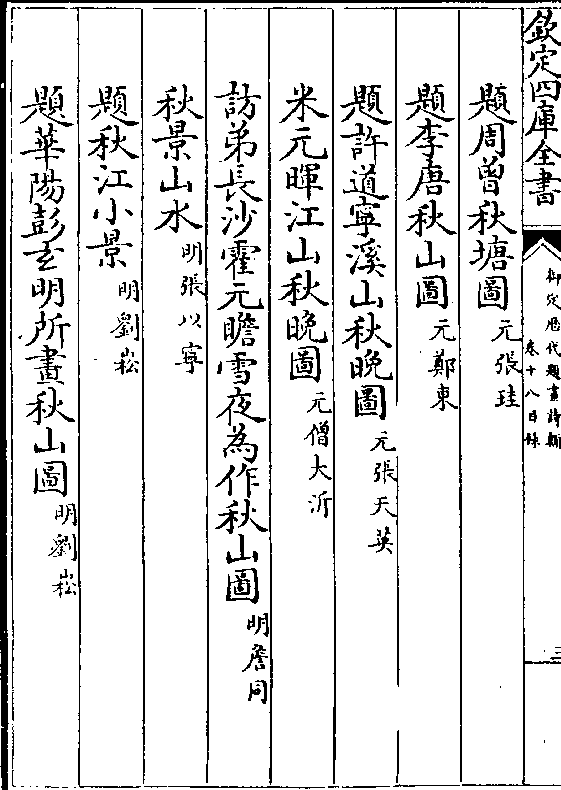 欽定四庫全書
御定歷代題畫詩類
卷十八目錄
三
題周曾秋塘圖 元張珪
題李唐秋山圖 元鄭東
題許道寧溪山秋晚圖 元張天英
米元暉江山秋晚圖 元僧大沂
訪弟長沙霍元瞻雪夜為作秋山圖 明詹同
秋景山水 明張以寧
題秋江小景 明劉崧
題華陽彭玄明所畫秋山圖 明劉崧